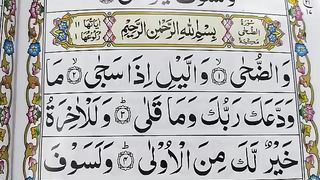 سُوْرَةُ الضُّحٰى مَكِّيَّةٌ
بِسْمِ اللّٰهِ الرَّحْمٰنِ الرَّحِيْمِ
اٰيَاتُهَا ١١
وَالضُّحٰى ۙ﴿١﴾ وَالَّيْلِ اِذَا سَجٰى ۙ﴿٢﴾ مَا
وَدَّعَكَ رَبُّكَ وَمَا قَلٰى ؕ﴿٣﴾ وَلَلْاٰخِرَةُ
خَيْرٌ لَّكَ مِنَ الْاُوْلٰى ؕ﴿٤﴾ وَلَسَوْفَ